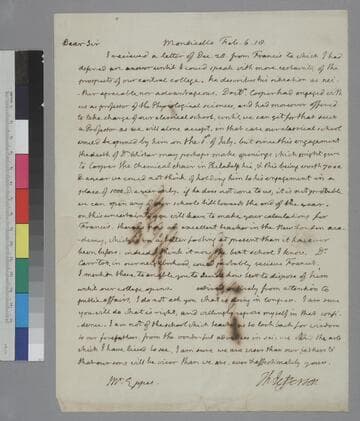 Dear Sir Monticello Feb. 6. 18.
I recieved a letter of Dec. 28. from Francis to which I had
deferred an answer until I could speak with more certainty of the
prospects of our central college. he describes his situation as nei-
ther agreeable nor advantageous. Doctr. Cooper had engaged with
us as professor of the Physiological sciences, and had moreover offered
to take charge of our classical school, until we can get for that such
a Professor as we will alone accept. in that case our classical school
would be opened by him on the 1st of July. but since this engagement
the death of Dr. Wistar may perhaps make openings which might give
to Cooper the chemical chair in Philada. & this being worth 7000
D. a year we could not think of holding him to his engagement in a
place of 1000. D. a year only. if he does not come to us, it is not probable
we can open any school till towards the end of the year.
on this uncertainty you will have to make your calculations for
Francis. there is an excellent teacher in the New London aca-
demy, which is on a better footing at present than it has ever
been before; indeed I think it now the best school I know. Dr.
Carr too, in our neighborhood, would probably recieve Francis.
I mention these to enable you to decide how best to dispose of him
until our college opens. retired entirely from attention to
public affairs, I do not ask you what is doing in Congress. I am sure
you will do what is right, and willingly repose myself in that confi-
dence. I am not of the school which teaches us to look back for wisdom
to our forefathers. from the wonderful advances in science & the arts
which I have lived to see, I am sure we are wiser than our fathers &
that our sons will be wiser than we are. ever & affectionately yours.
Mr. Eppes Th: Jefferson